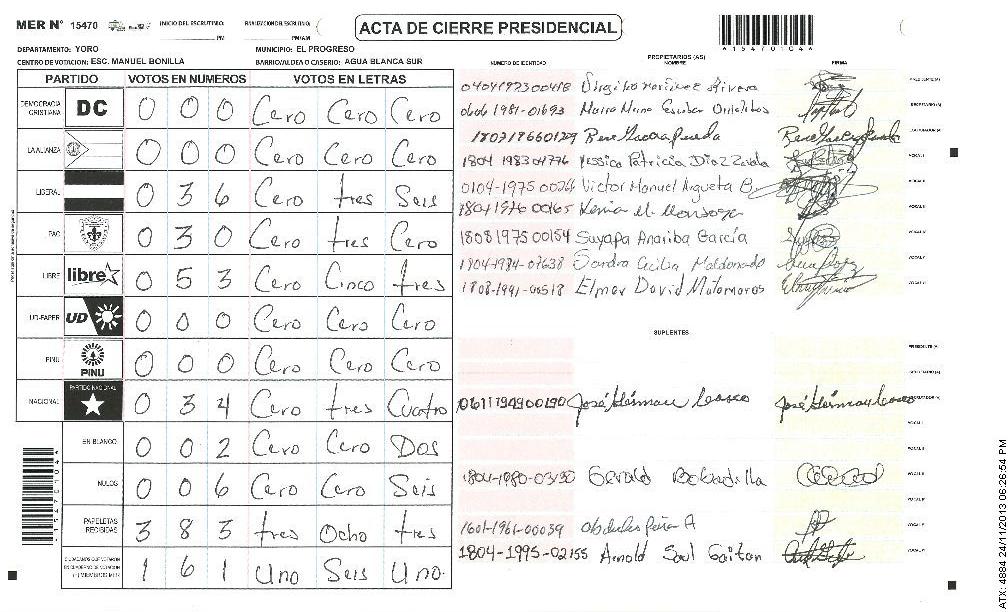 MER N° 15470 INICIO DEL ESCRUTINIO: PM FINALIZACION DEL ESCRUTINIO: PM/AM
ACTA DE CIERRE PRESIDENCIAL
A15470104A
DEPARTAMENTO: YORO MUNICIPIO: EL PROGRESO
CENTRO DE VOTACION: ESC. MANUEL BONILLA BARRIO/ALDEA O CASERIO: AGUA BLANCA SUR
PROPIETARIOS (AS)
NUMERO DE IDENTIDAD NOMBRE FIRMA
PARTIDO VOTOS EN NUMEROS VOTOS EN LETRAS
DEMOCRACIA CRISTIANA DC 0 0 0 Cero Cero Cero
LA ALIANZA 0 0 0 Cero Cero Cero
LIBERAL 0 3 6 Cero tres Seis
PAC 0 3 0 Cero tres Cero
LIBRE libre 0 5 3 Cero Cinco tres
UD-FAPER UD 0 0 0 Cero Cero Cero
PINU PINU 0 0 0 Cero Cero Cero
NACIONAL PARTIDO NACIONAL 0 3 4 Cero tres Cuatro
EN BLANCO 0 0 2 Cero Cero Dos
NULOS 0 0 6 Cero Cero Seis
PAPELETAS RECIBIDAS 3 8 3 tres Ocho tres
CIUDADANOS QUE VOTARON EN CUADERNO DE VOTACION (+) MIEMBROS MER 1 6 1 Uno Seis Uno
PRESIDENTE (A)
SECRETARIO (A)
Rene
1804 1983 01776 Yessica Patricia Diaz Zavala VOCAL I
Victor Manuel Argueta B.
1804 1976 00165 Kenia M. Mendoza
1808 1975 00154 Suyapa Anariba García
1804-1984-07638 Sandra Maldonado
1808-1991-00518 Elmer David Matamoros
SUPLENTES
PRESIDENTE (A)
SECRETARIO (A)
0611194900190 José Germán
Gerald Bobadilla
1601-1961-00039
1804-1995-02155 Arnold Saul Gaitan
ATX: 4884 24/11/2013 06:26:54 PM